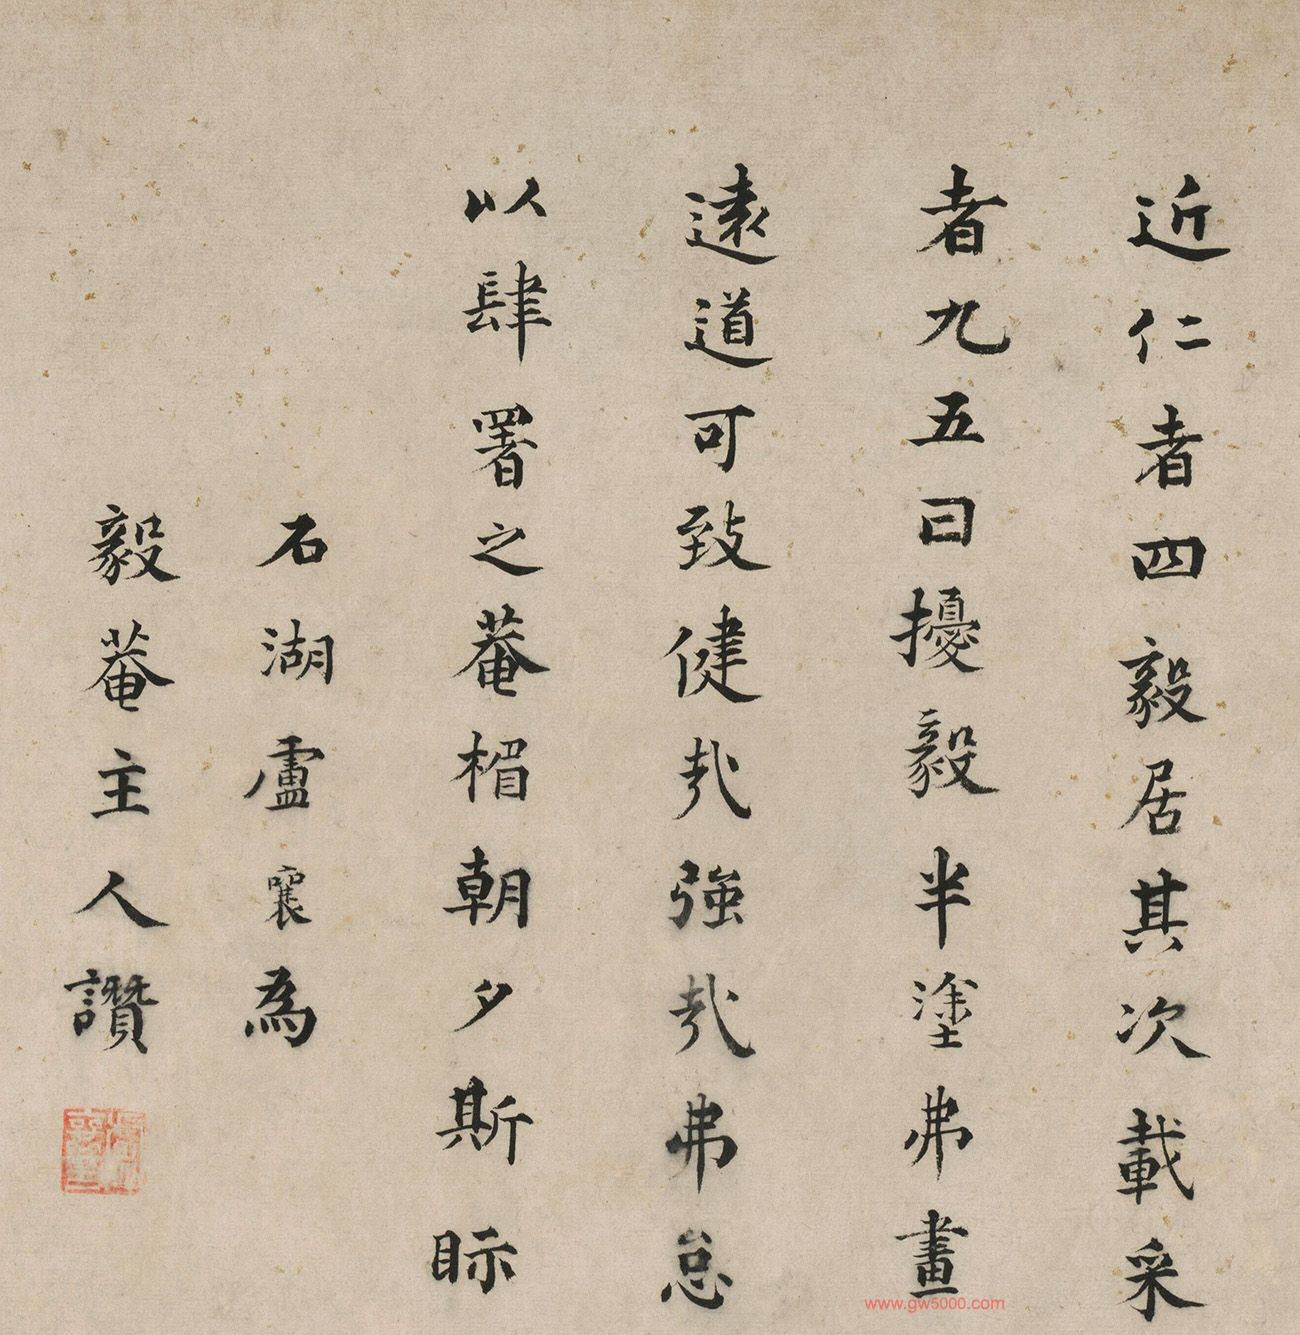 近仁者四毅居其次載采
者九五曰擾毅半塗弗畫
遠道可致健哉強哉弗怠
以肆署之菴楣朝夕斯眎
石湖盧襄為
毅菴主人讚
www.gw5000.com